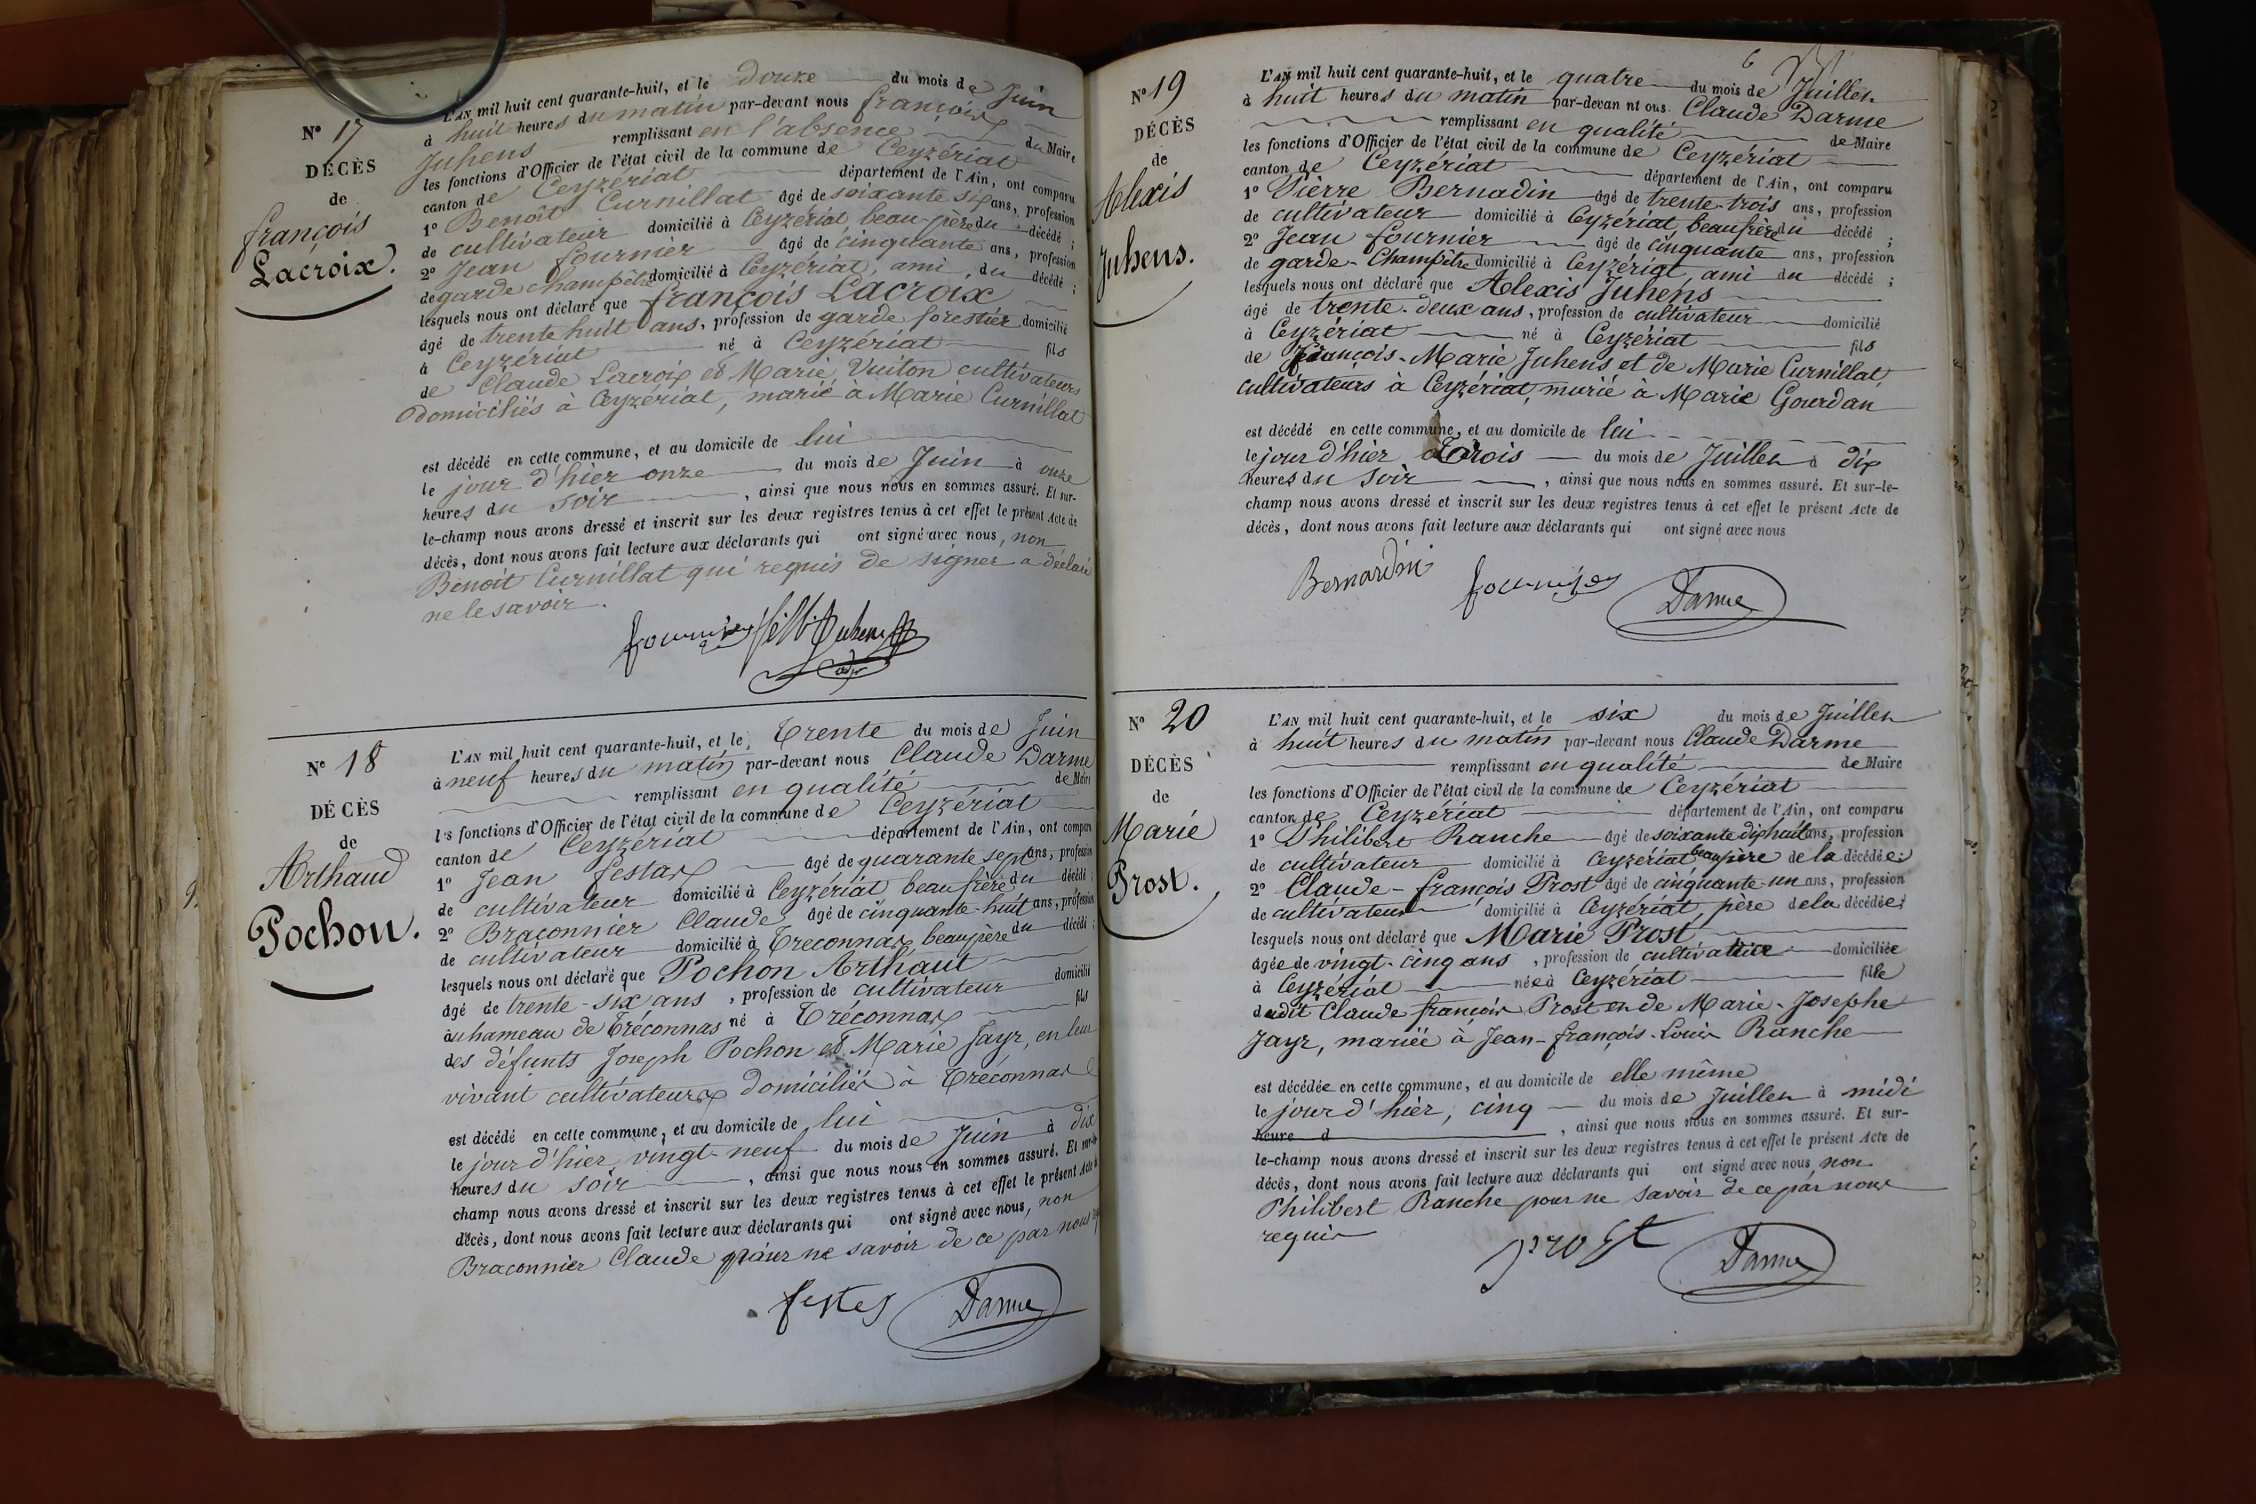 N° 17
DÉCÈS
de
françois
Lacroix.
L'AN mil huit cent quarante-huit, et le douze du mois de Juin
à huit heures du matin par-devant nous françois
Juhens remplissant en l'absence du Maire
les fonctions d'Officier de l'état civil de la commune de Ceyzériat
canton de Ceyzériat département de l'Ain, ont comparu
1° Benoît Curnillat âgé de soixante six ans, profession
de cultivateur domicilié à Ceyzériat, beau-père du décédé ;
2° Jean fournier âgé de cinquante ans, profession
de garde champêtre domicilié à Ceyzériat, ami, du décédé ;
lesquels nous ont déclaré que françois Lacroix
âgé de trente huit ans, profession de garde forestier domicilié
à Ceyzériat né à Ceyzériat fils
de Claude Lacroix et Marie Vuiton cultivateurs
domiciliés à Ceyzériat, marié à Marie Curnillat
est décédé en cette commune, et au domicile de lui
le jour d'hier onze du mois de Juin à onze
heures du soir, ainsi que nous nous en sommes assuré. Et sur-
le-champ nous avons dressé et inscrit sur les deux registres tenus à cet effet le présent Acte de
décès, dont nous avons fait lecture aux déclarants qui ont signé avec nous, non
Benoît Curnillat qui requis de signer a déclaré
ne le savoir.
fournier Juhens
N° 18
DÉCÈS
de
Arthaud
Pochon.
L'AN mil huit cent quarante-huit, et le, trente du mois de Juin
à neuf heures du matin par-devant nous Claude Darme
remplissant en qualité de Maire
les fonctions d'Officier de l'état civil de la commune de Ceyzériat
canton de Ceyzériat département de l'Ain, ont comparu
1° Jean festas âgé de quarante sept ans, profession
de cultivateur domicilié à Ceyzériat beau frère du décédé
2° Braconnier Claude âgé de cinquante-huit ans, profession
de cultivateur domicilié à Treconnas, beaupère du décédé ;
lesquels nous ont déclaré que Pochon Arthaut
âgé de trente-six ans, profession de cultivateur domicilié
au hameau de Tréconnas né à Tréconnas fils
des défunts Joseph Pochon et Marie Jayr, en leur
vivant cultivateurs domiciliés à Treconnas
est décédé en cette commune, et au domicile de lui
le jour d'hier vingt-neuf du mois de Juin à dix
heures du soir, ainsi que nous nous en sommes assuré. Et sur-le-
champ nous avons dressé et inscrit sur les deux registres tenus à cet effet le présent Acte de
décès, dont nous avons fait lecture aux déclarants qui ont signé avec nous, non
Braconnier Claude pour ne savoir de ce par nous
festas Darme
6
N° 19
DÉCÈS
de
Alexis
Juhens.
L'AN mil huit cent quarante-huit, et le quatre du mois de Juillet
à huit heures du matin par-devan nt ous Claude Darme
remplissant en qualité de Maire
les fonctions d'Officier de l'état civil de la commune de Ceyzériat
canton de Ceyzériat département de l'Ain, ont comparu
1° Pierre Bernadin âgé de trente-trois ans, profession
de cultivateur domicilié à Ceyzériat, beaufrère du décédé ;
2° Jean fournier âgé de cinquante ans, profession
de garde-Champêtre domicilié à Ceyzériat, ami du décédé ;
lesquels nous ont déclaré que Alexis Juhens
âgé de trente-deux ans, profession de cultivateur domicilié
à Ceyzériat né à Ceyzériat fils
de François-Marie Juhens et de Marie Curnillat,
cultivateurs à Ceyzériat, marié à Marie Gourdan
est décédé en cette commune, et au domicile de lui
le jour d'hier trois du mois de Juillet à dix
heures du soir, ainsi que nous nous en sommes assuré. Et sur-le-
champ nous avons dressé et inscrit sur les deux registres tenus à cet effet le présent Acte de
décès, dont nous avons fait lecture aux déclarants qui ont signé avec nous
Bernardin fournier Darme
N° 20
DÉCÈS
de
Marie
Prost.
L'AN mil huit cent quarante-huit, et le six du mois de Juillet
à huit heures du matin par-devant nous Claude Darme
remplissant en qualité de Maire
les fonctions d'Officier de l'état civil de la commune de Ceyzériat
canton de Ceyzériat département de l'Ain, ont comparu
1° Philibert Ranche âgé de soixante dix huit ans, profession
de cultivateur domicilié à Ceyzériat beaupère de la décédée ;
2° Claude-françois Prost âgé de cinquante-un ans, profession
de cultivateur domicilié à Ceyzériat, père de la décédée ;
lesquels nous ont déclaré que Marie Prost
âgée de vingt-cinq ans, profession de cultivatrice domiciliée
à Ceyzériat née à Ceyzériat fille
dudit Claude françois Prost et de Marie-Josephe
Jayr, mariée à Jean-françois-Louis Ranche
est décédée en cette commune, et au domicile de elle même
le jour d'hier, cinq du mois de Juillet à midi
heure d, ainsi que nous nous en sommes assuré. Et sur-
le-champ nous avons dressé et inscrit sur les deux registres tenus à cet effet le présent Acte de
décès, dont nous avons fait lecture aux déclarants qui ont signé avec nous, non
Philibert Ranche pour ne savoir de ce par nous
requis
prost Darme